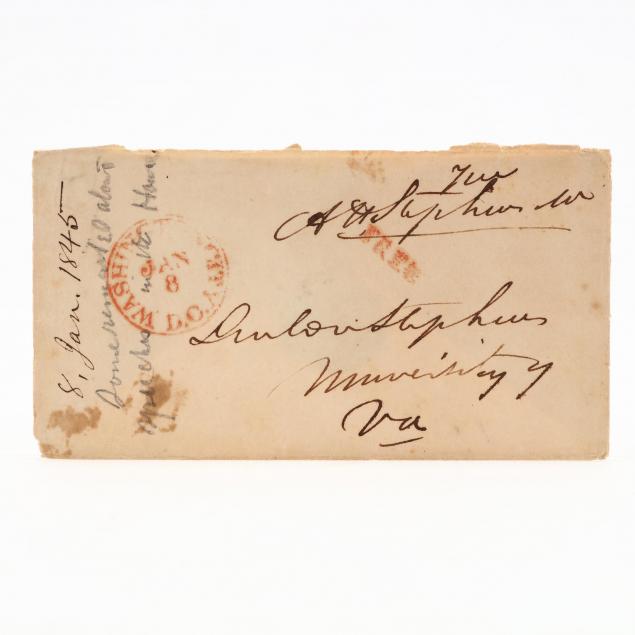 Free
A H Stephens M
FREE
WASHINGTON D.C.
JAN
8
Linton Stephens
University
Va
8, Jan. 1845
Some remarks about
speeches in the House